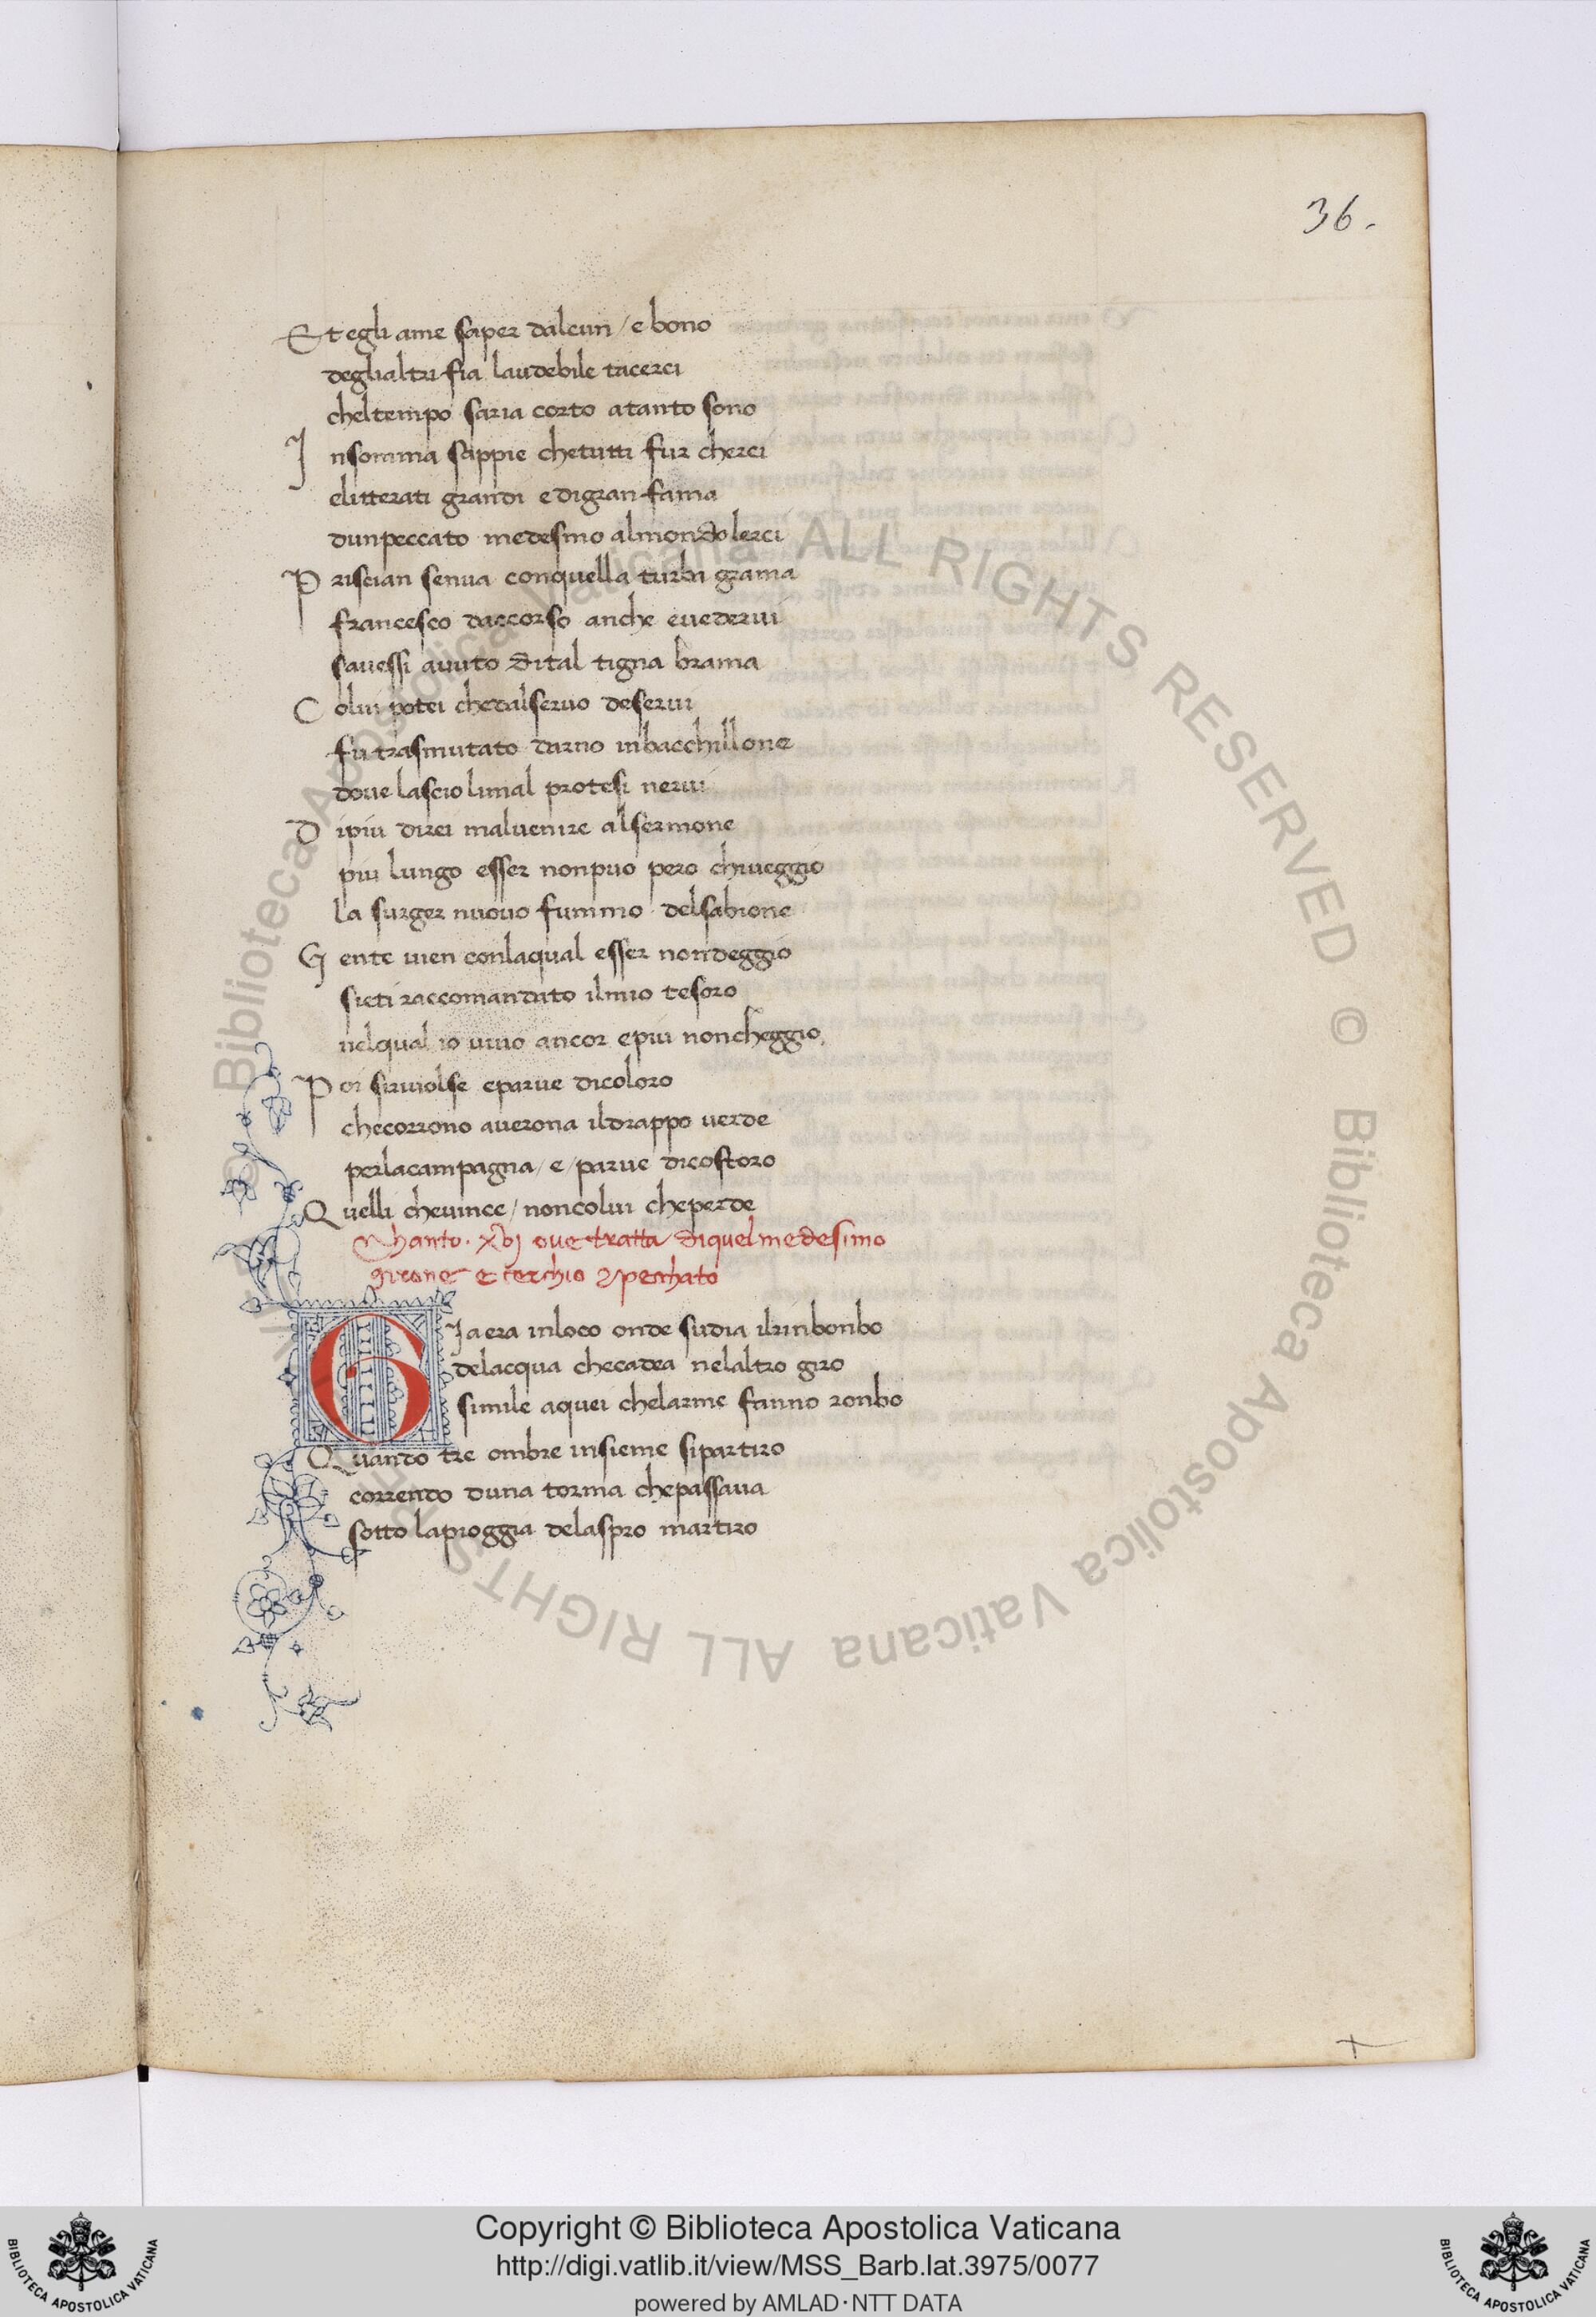 36.
Et egli ame saper dalcun / e bono
deglialtri fia laudebile tacerci
cheltempo saria corto atanto sono
Insomma sappie chetutti fur cherci
elitterati grandi e digran fama
dunpeccato medesmo almondo lerci
Priscian senua conquella turba grama
francesco daccorso anche euedervi
sauessi auuto dital tigna brama
Colui potei chedalseruo deserui
fu trasmutato darno inbacchillone
doue lascio limal protesi nerui
Dipiu direi maluenire alsermone
piu lungo esser nonpuo pero chiueggio
la surger nuouo fummo delsabione
Gente uien conlaqual esser nondeggio
sieti raccomandato ilmio tesoro
nelqual io uiuo ancor epiu noncheggio.
Poi siriuolse eparue dicoloro
checorrono auerona ildrappo uerde
perlacampagna / e / parue dicostoro
Quelli cheuince / noncolui cheperde
Chanto. xvj oue tratta diquelmedesimo
girone e cerchio & pecchato
GIa era inloco onde sudia ilrinbonbo
delacqua checadea nelaltro giro
simile aquei chelarme fanno ronbo
Quando tre ombre insieme sipartiro
correndo duna torma chepassaua
sotto lapioggia delaspro martiro
© Biblioteca Apostolica Vaticana ALL RIGHTS RESERVED © Biblioteca Apostolica Vaticana ALL RIGHTS
Copyright © Biblioteca Apostolica Vaticana
http://digi.vatlib.it/view/MSS_Barb.lat.3975/0077
powered by AMLAD·NTT DATA
BIBLIOTECA APOSTOLICA VATICANA
BIBLIOTECA APOSTOLICA VATICANA